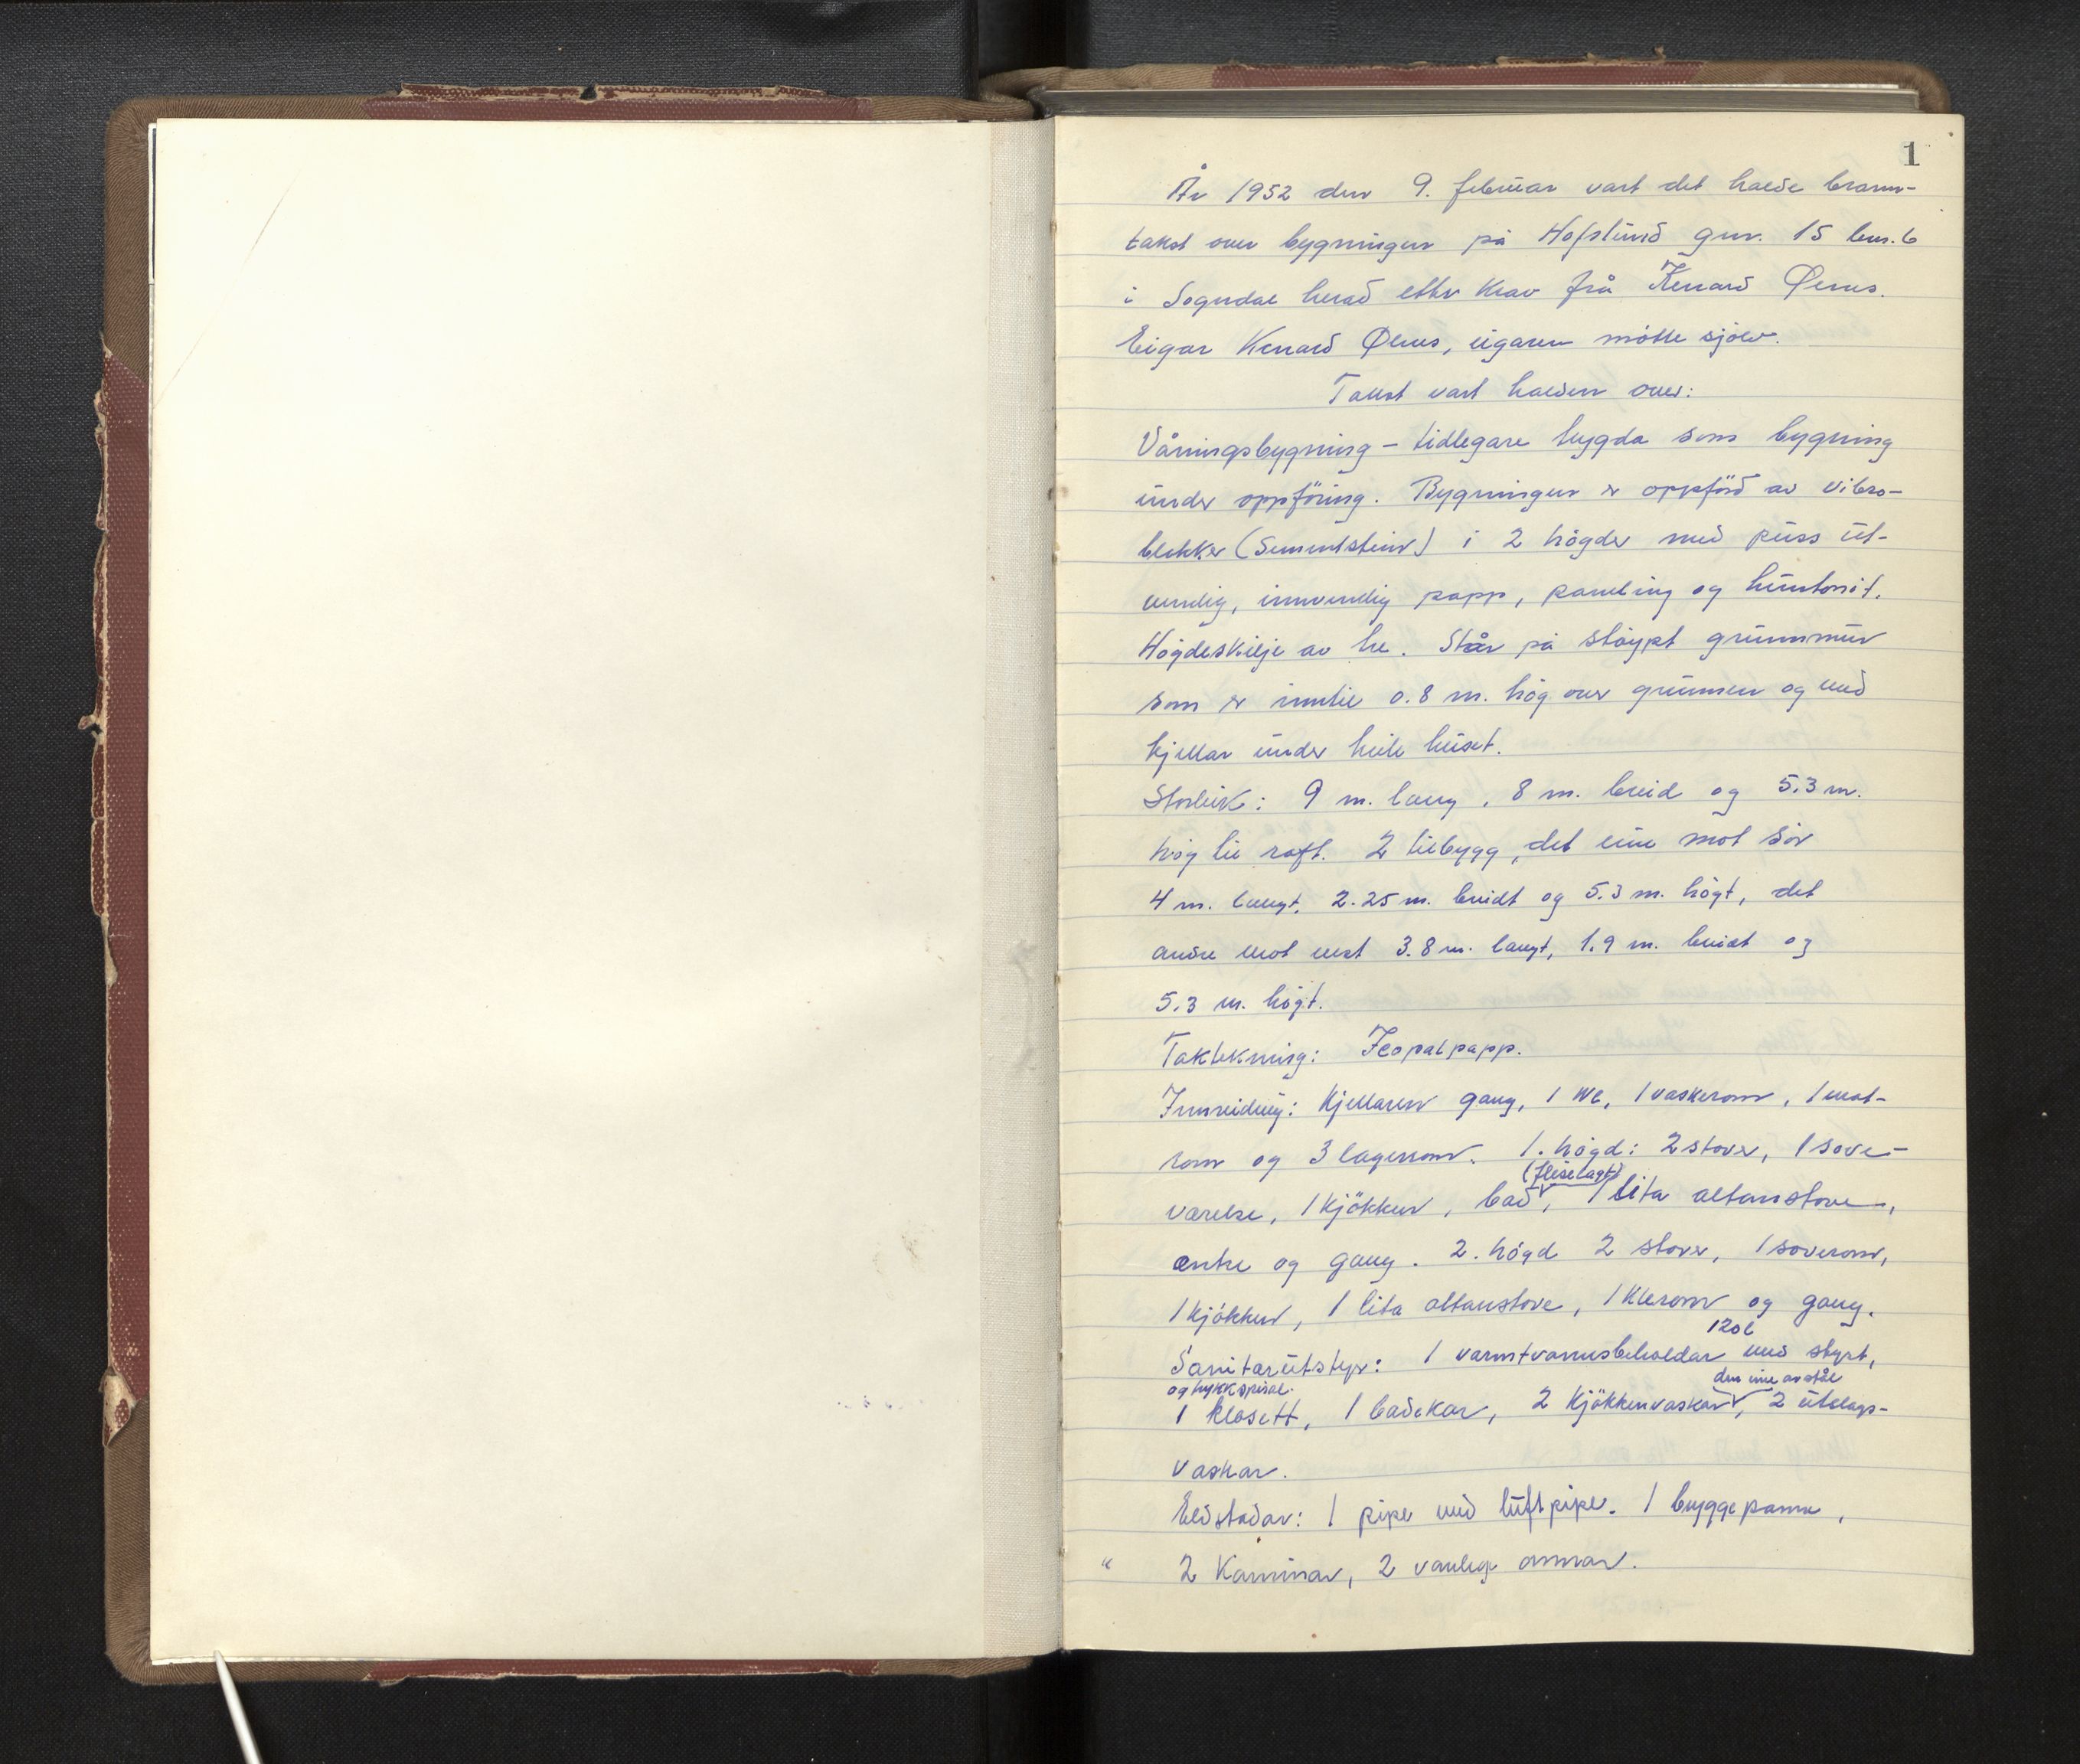 1
År 1952 den 9. februar vart det halde brann-
takst over bygningen på Hofslund gnr. 15 bnr. 6
i Sogndal herad etter krav frå Kenard Ølnes.
Eigar Kenard Ølnes, eigaren møtte sjølv.
Takst vart halden over:
Våningsbygning – tidlegare trygda som bygning
under oppföring. Bygningen er oppförd av vibro-
blokker (Sementstein) i 2 högder med puss ut-
vendig, innvendig papp, paneling og huntonit.
Högdeskilje av tre. Står på stöypt grunnmur
som er inntil 0.8 m. hög over grunnen og med
kjellar under heile huset.
Storleik: 9 m. lang, 8 m. breid og 5.3 m.
hög til raft. 2 tilbygg, det eine mot sör
4 m. langt, 2.25 m. breidt og 5.3 m. högt, det
andre mot vest 3.8 m. langt, 1.9 m. breidt og
5.3 m. högt.
Taktekning: Icopalpapp.
Innreiding: Kjellaren gang, 1 WC, 1 vaskerom, 1 mat-
rom og 3 lagerrom. 1. högd: 2 stover, 1 sove-
(fliselagt)
værelse, 1 kjökken, bad, 1 lita altanstove,
entre og gang. 2. högd 2 stover, 1 soverom,
1 kjökken, 1 lita altanstove, 1 klerom og gang.
120 l
Sanitærutstyr: 1 varmtvannsbeholdar med styrt,
og trykkspiral. den eine av stål
1 klosett, 1 badekar, 2 kjökkenvaskar, 2 utslags-
vaskar.
Eldstadar: 1 pipe med luftpipe. 1 bryggepanne,
" 2 Kaminar, 2 vanlege omnar.